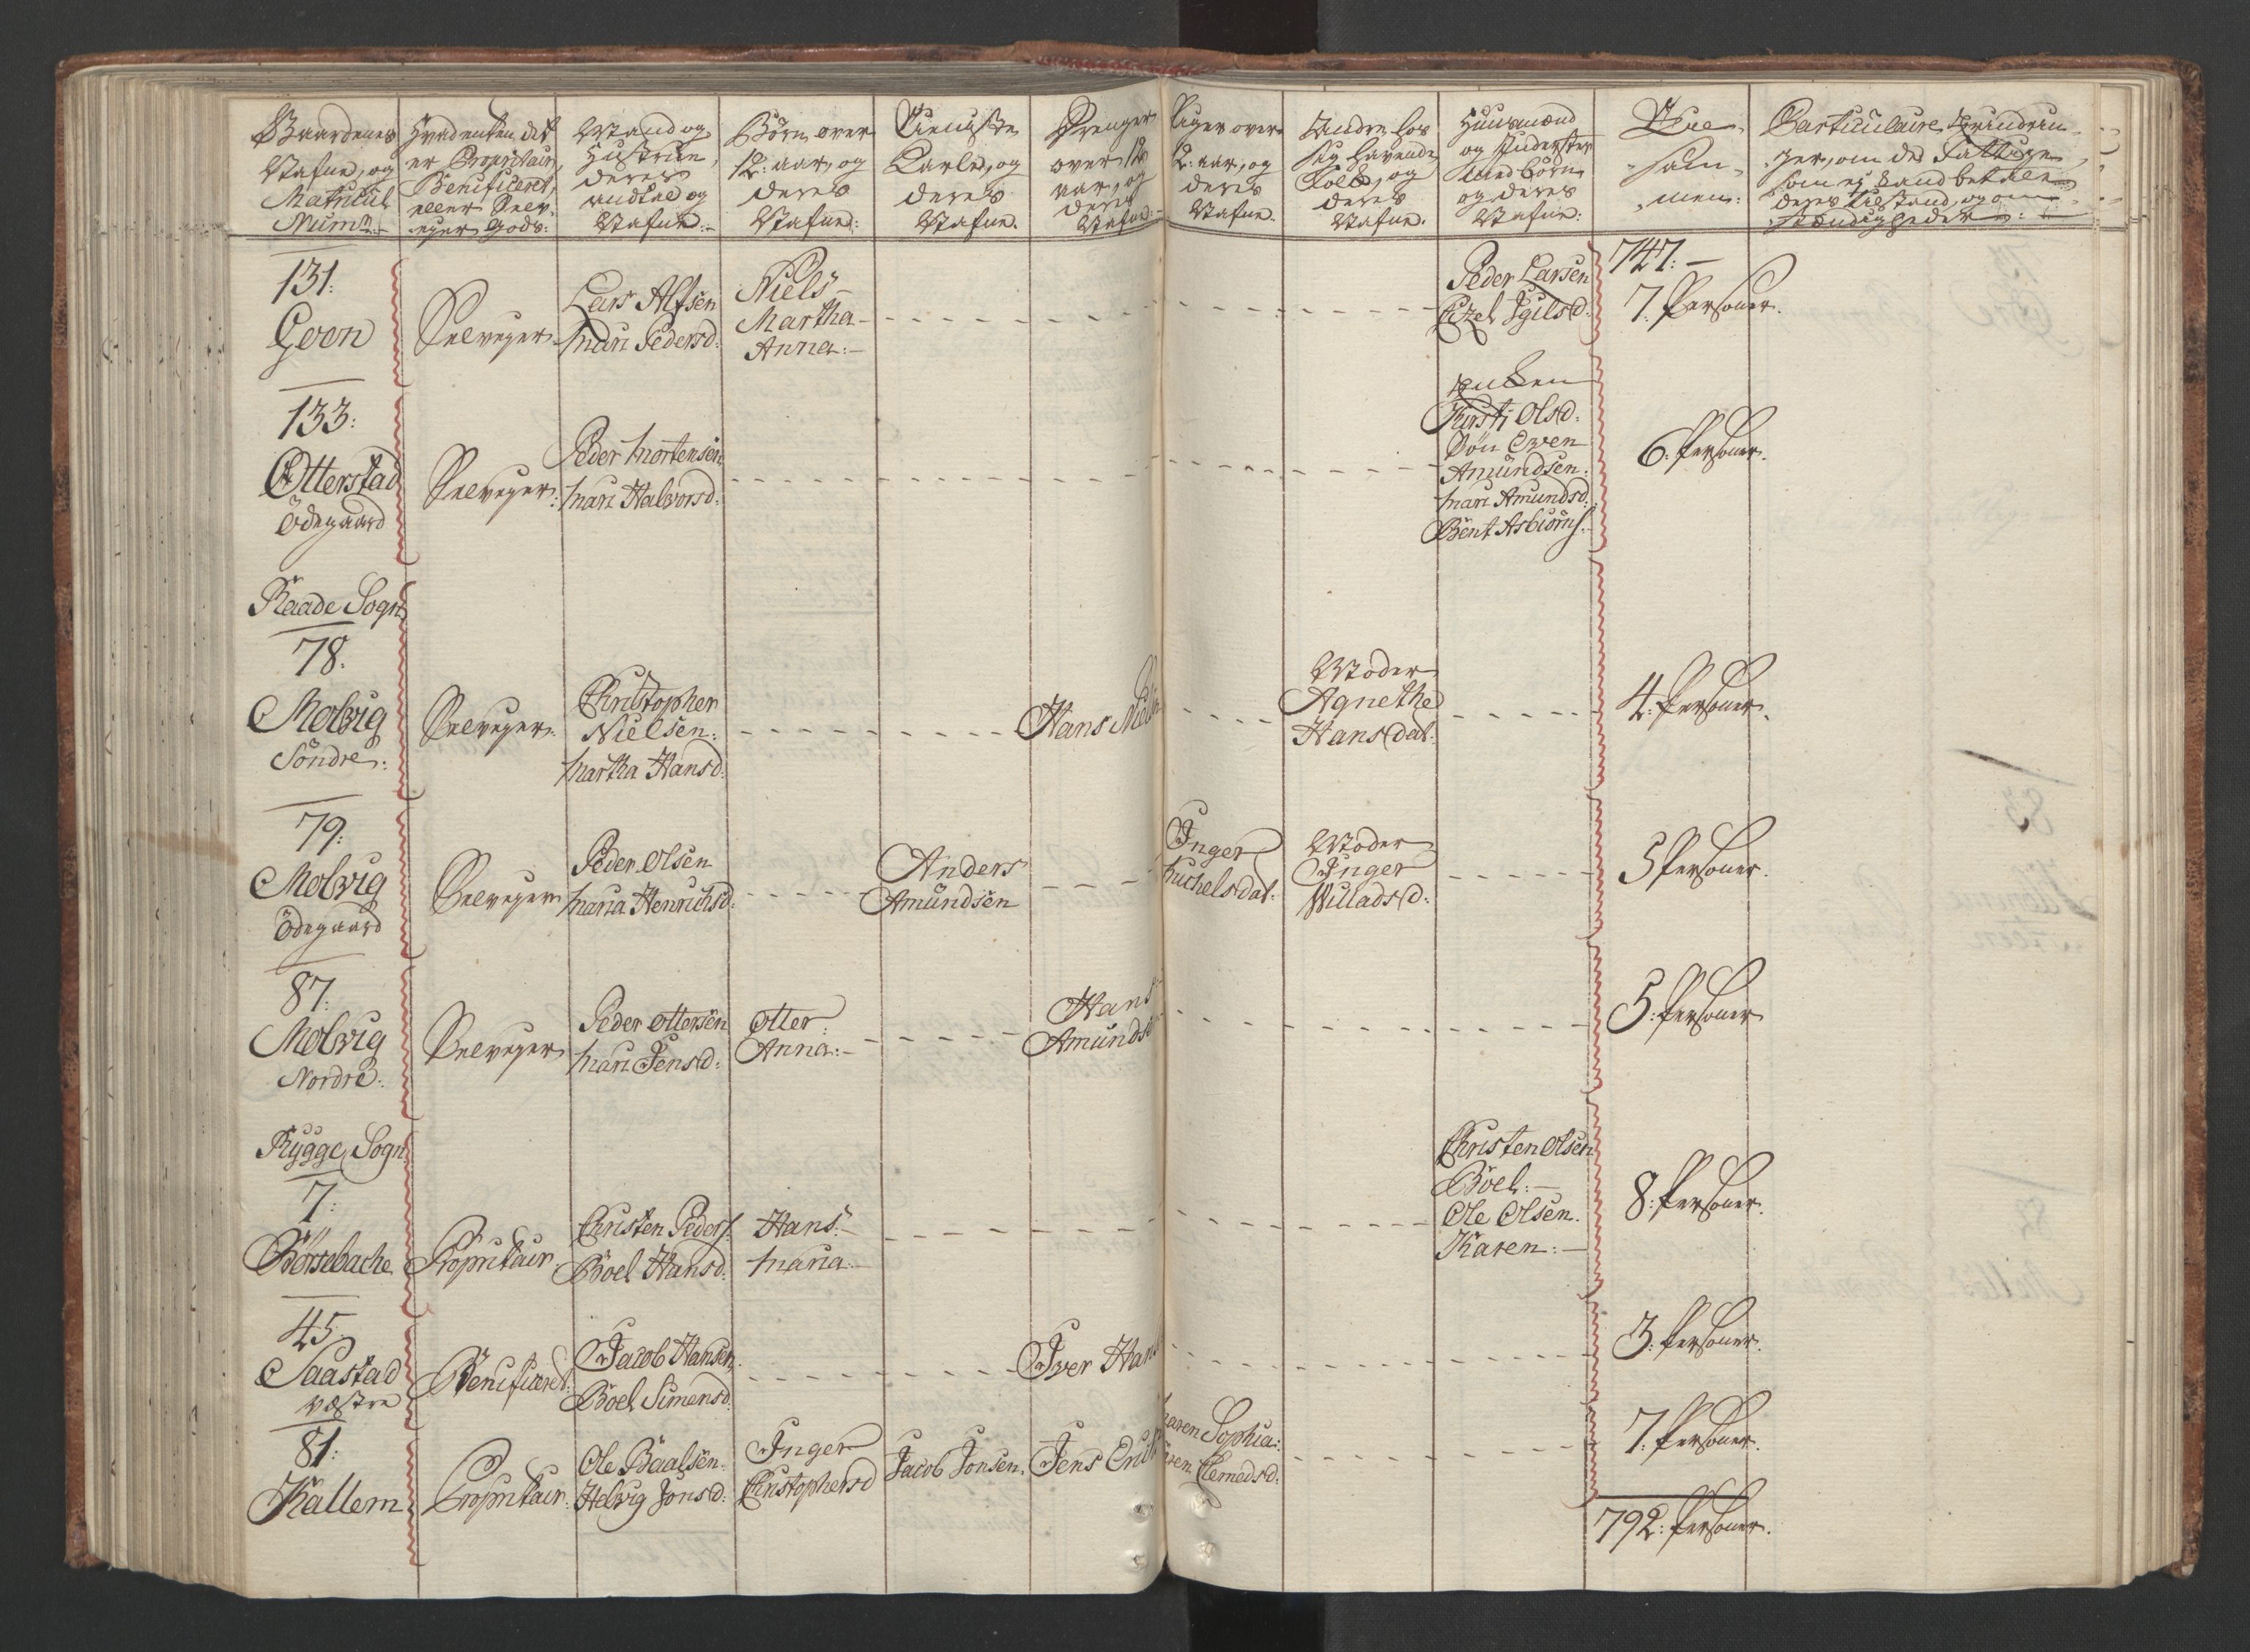 Gaardenes
Nafne, og
Matricul
Num:
Hvadenten det
er Proprietair,
Beneficeret,
eller Selv-
eyer Gods:
Mand og
Hustrue,
deres
andtal og
Nafne:
Børn over
12: aar, og
deres
Nafne:
Tieniste
Karle, og
deres
Nafne.
Drenger
over 12
aar, og
deres
Nafne:
Piger over
12: aar, og
deres
Nafne.
Andre hos
sig havende
Folk, og
deres
Nafne.
Huusmænd
og Inderster
med børn
og deres
Nafne:
Tilsam-
men:
Particulaire Erindrin-
ger, om de Fattige
som ej kand betale
deres tilstand, og om-
stændigheder:
747:
131:
Goon
Selveyer
Lars Alfsen
Mari Pedersd:
Niels
Martha
Anna:
Peder Larsen
Cizel Egilsd:
7. Personer.
133:
Otterstad
Ödegaard
Selveyer:
Peder Mortensen
Mari Halvorsd:
Enken
Kirsti Olsd:
Sön Even
Amundsen.
Mari Amundsd:
Bent Asbiörns.
6. Personer.
Raade Sogn
78.
Molvig
Söndre:
Selveyer:
Christopher
Nielsen:
Martha Hansd:
Hans Niels
Moder
Agnethe
Hans dat:
4. Personer.
79:
Molvig
Ödegaard
Selveyer
Peder Olsen
Maria Henrichsd:
Anders
Amundsen
Inger
Michelsdat:
Moder
Inger
Willadsd:
5 Personer.
87:
Molvig
Nordre:
Selveyer
Peder Ottersen
Mari Jensd:
Otter:
Anna:
Hans
Amunds
5: Personer
Rygge Sogn
7:
Börsebache
Proprietair.
Christen Peders.
Boel Hansd:
Hans:
Maria:
Christen Olsen
Boel:
Ole Olsen.
Karen:
8: Personer.
45.
Saastad
Væstre
Beneficeret:
Jacob Hansen.
Boel Simensd:
Iver Hans
3: Personer.
81:
Kallem
Proprietair:
Ole Baalsen.
Helvig Jonsd:
Inger
Christophersd
Jacob Jonsen.
Jens Erich
Maren Sophia:
Clemedsd:
7: Personer.
792: Personer.